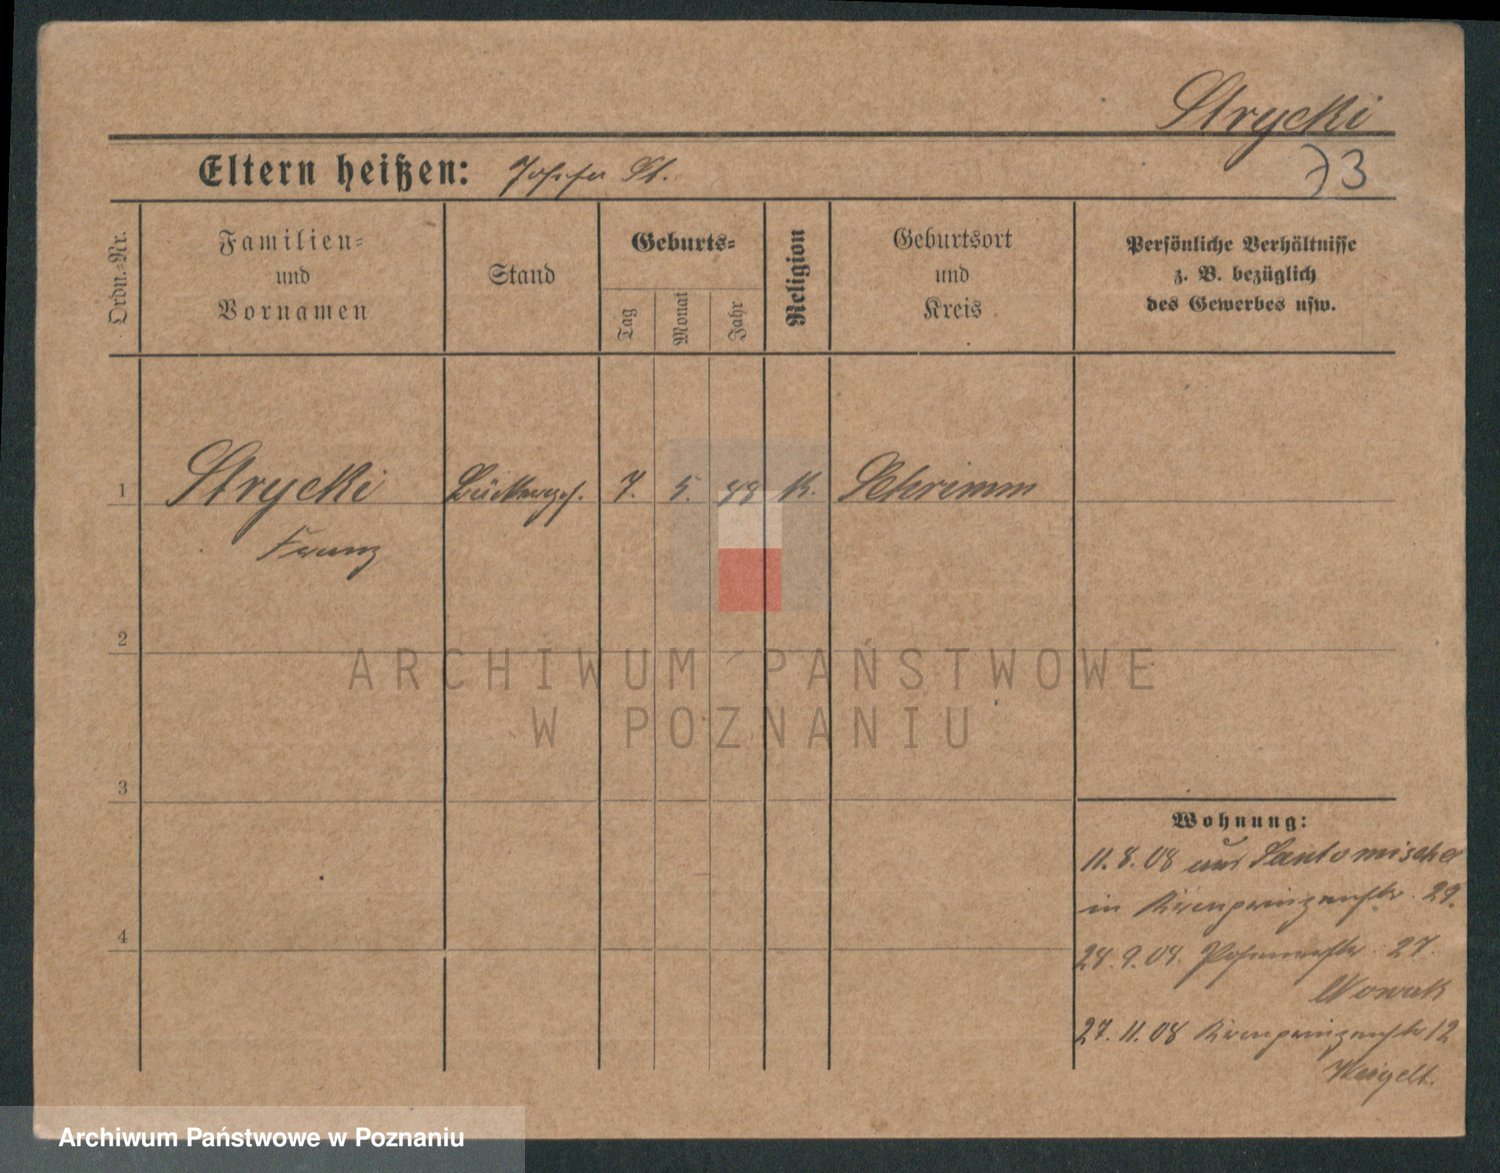 Strycki
73
Eltern heißen: Josefa St.
Ordn.=Nr.
Familien=
und
Vornamen
Stand
Geburts=
Tag
Monat
Jahr
Religion
Geburtsort
und
Kreis
Persönliche Verhältnisse
z. B. bezüglich
des Gewerbes usw.
1 Strycki Bäckergef. 7. 5. 88 K. Schrimm
Franz
2
3
4
ARCHIWUM PAŃSTWOWE
W POZNANIU
Wohnung:
11.8.08 aus Santomischel
in Kronprinzenstr. 29.
28.9.08. Posenerstr. 27.
Nowak
27.11.08 Kronprinzenstr 12
Weigelt.
Archiwum Państwowe w Poznaniu